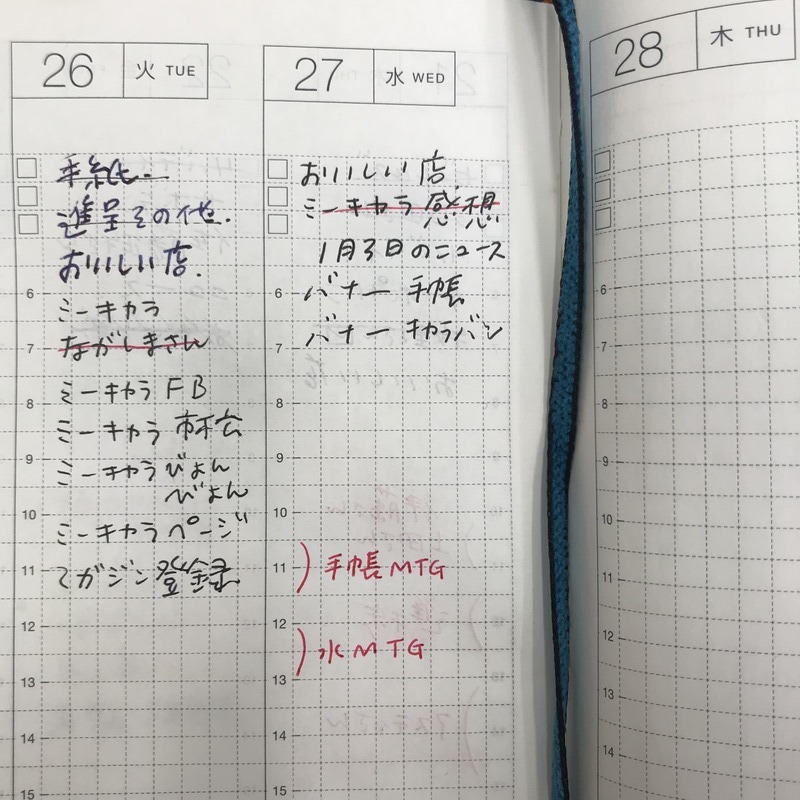 26 火 TUE
手紙
進呈その他.
おいしい店.
ミーキャラ
ながしまさん
ミーキャラ FB
ミーキャラ
ミーキャラ びよん
びよん
ミーキャラ ページ
マガジン登録
6
7
8
9
10
11
12
13
14
15
27 水 WED
おいしい店.
ミーキャラ 感想
1月3日のニュース
バナー 手帳
バナー キャラバン
手帳 MTG
水 MTG
6
7
8
9
10
11
12
13
14
15
28 木 THU
6
7
8
9
10
11
12
13
14